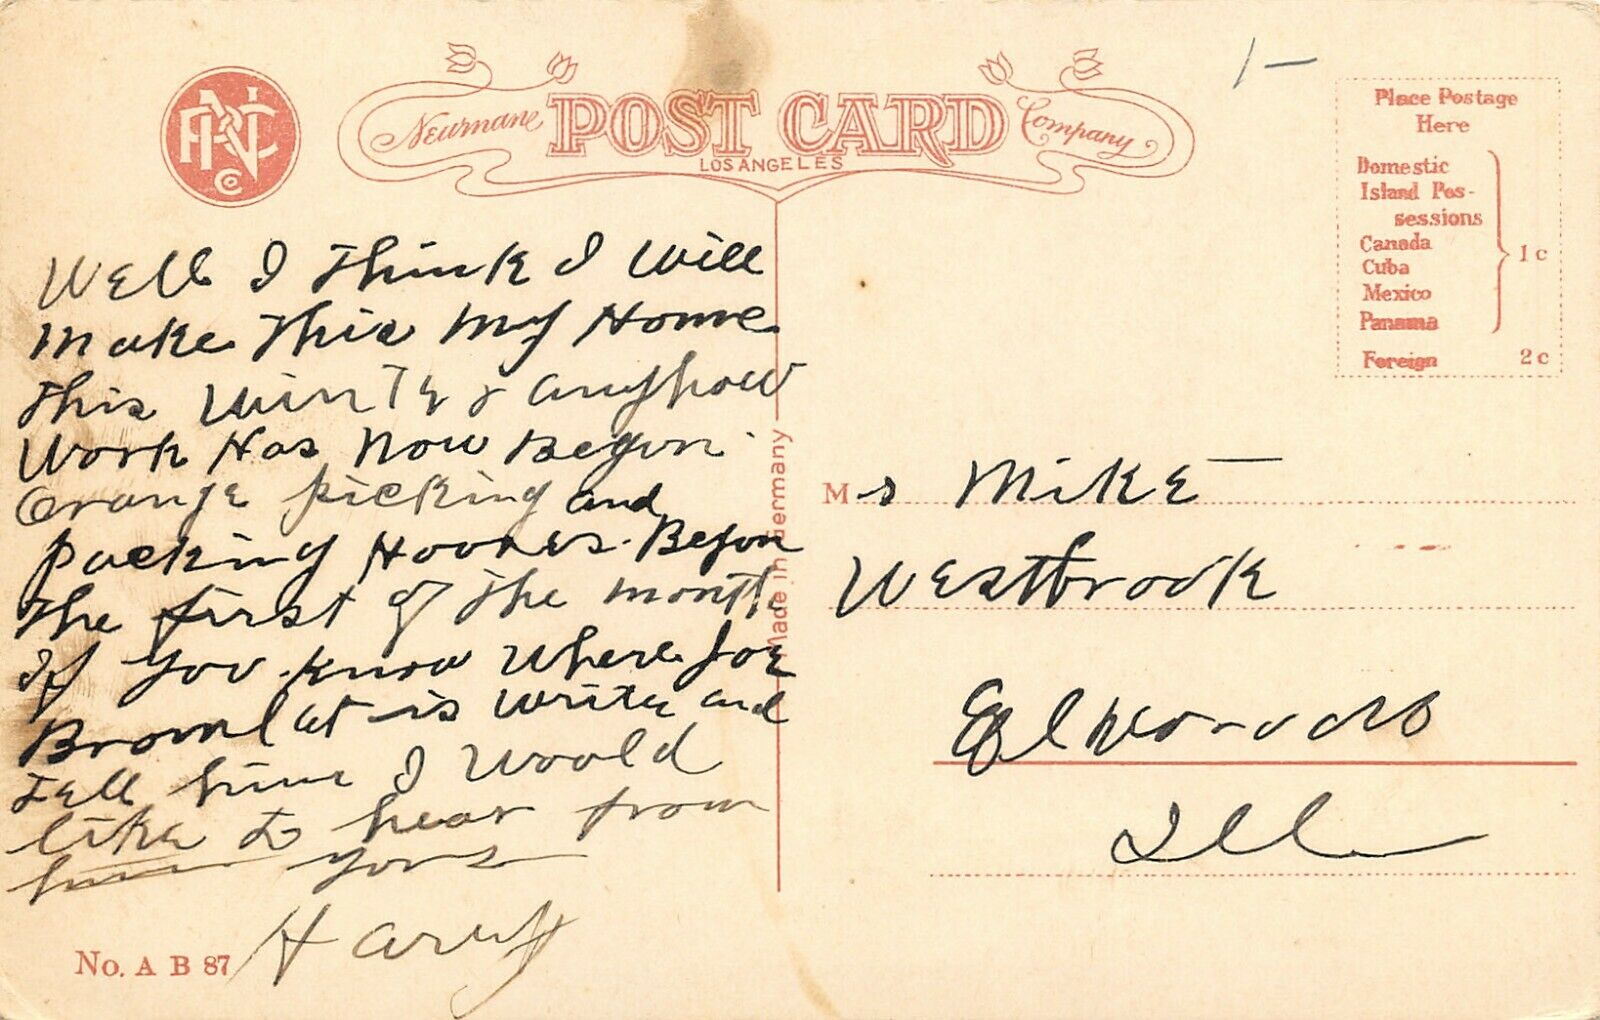 PNC Co
Newmane POST CARD Company
LOS ANGELES
1-
Place Postage
Here
Domestic
Island Pos-
sessions
Canada
Cuba
Mexico
Panama
1c
Foreign 2c
Well I Think I Will
Make This My Home
This Winter anyhow
Work Has Now Begun
Orange picking and
packing Houses Begun
The first of The month
If you know Where Joe
Bromlat is write and
Tell him I Woold
like to hear from
him yors
Harry
No. A B 87
Made in Germany
Ms Mike
Westbrook
Elwoods
Ill